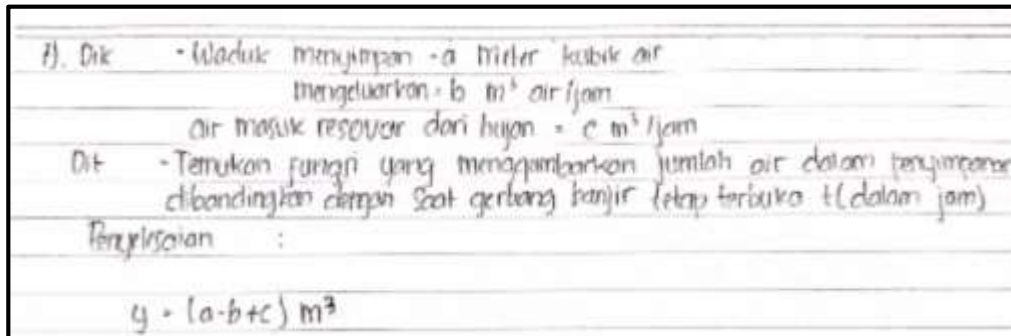 7). Dik - Waduk menyimpan = a meter kubik air
mengeluarkan = b m³ air/jam
air masuk resevoar dari hujan = c m³/jam
Dit - Temukan fungsi yang menggambarkan jumlah air dalam penyimpanan
dibandingkan dengan saat gerbang banjir tetap terbuka t (dalam jam)
Penyelesaian :
y = (a-b+c) m³